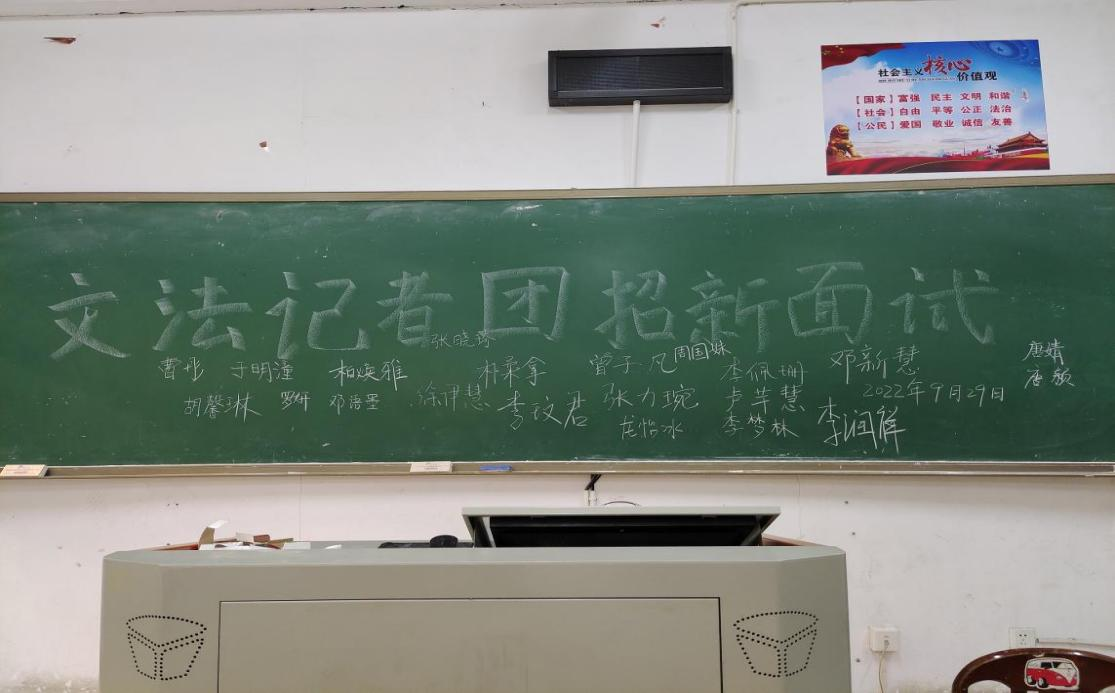 社会主义核心价值观
【国家】富强 民主 文明 和谐
【社会】自由 平等 公正 法治
【公民】爱国 敬业 诚信 友善
文法记者团招新面试
张晓琦
曹彤 于明潼 柏焕雅 朴荣拿 曾子凡 周国姝 李佩珊 邓新慧 唐婧
胡馨琳 罗妍 邓语墨 徐伊慧 李玟君 张力琬 卢芊慧 2022年9月29日 唐颖
龙怡冰 李梦林 李润鲜